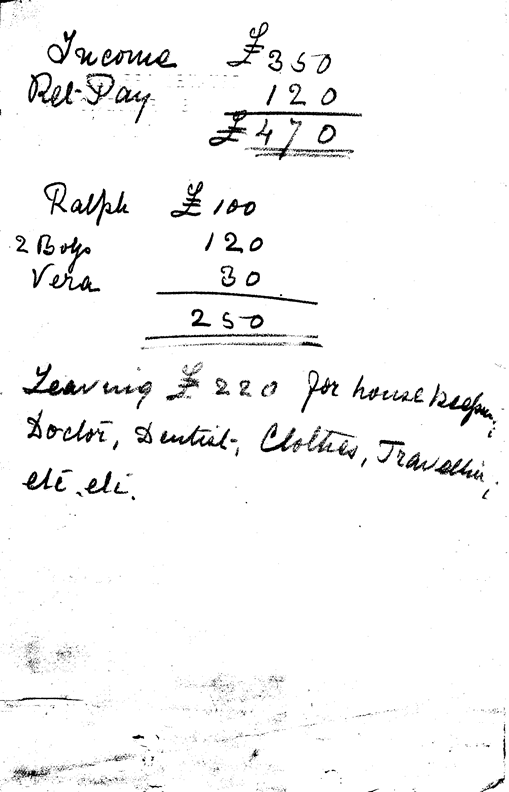 Income £350
Ret. Pay 120
£470
Ralph £100
2 Boys 120
Vera 30
250
Leaving £220 for housekeeping,
Doctor, Dentist, Clothes, Travelling,
etc. etc.